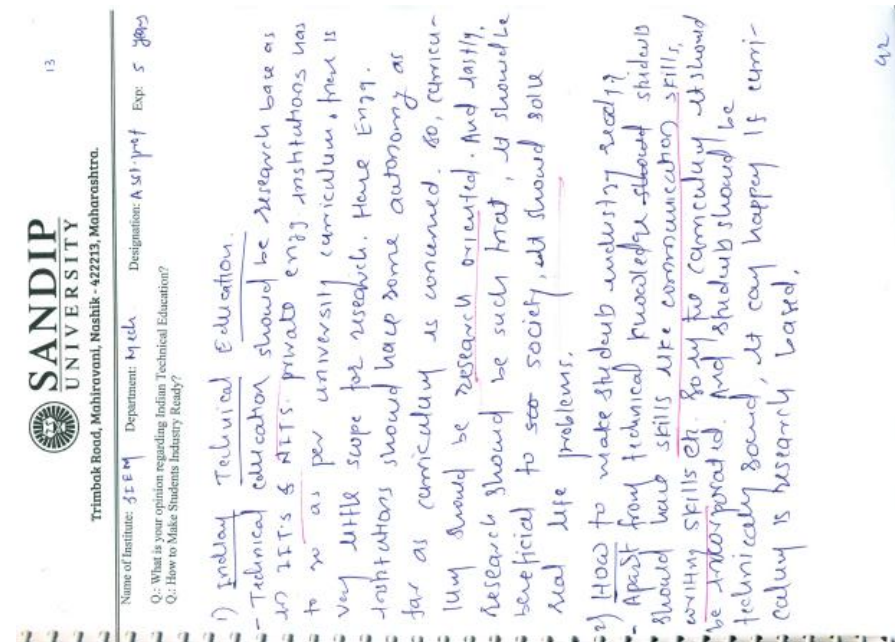 13
SANDIP
UNIVERSITY
Trimbak Road, Mahiravani, Nashik - 422213, Maharashtra.
Name of Institute: SIEM Department: Mech Designation: Asst. prof Exp: 5 years
Q.: What is your opinion regarding Indian Technical Education?
Q.: How to Make Students Industry Ready?
1) Indian Technical Education.
- Technical education should be research base as
in IIT's & NIT's. private engg institutions has
to go as per university curriculum, there is
very little scope for research. Hence Engg.
institutions should have some autonomy as
far as curriculum is concerned. so, curricu-
lum should be research oriented. And lastly,
Research should be such that, it should be
beneficial to society, it should solve
real life problems.
2) How to make students industry ready?
- Apart from technical knowledge students
should have skills like communication skills,
writing skills etc. So in the curriculum it should
be incorporated. And students should be
technically sound, it can happen if curri-
culum is research based.